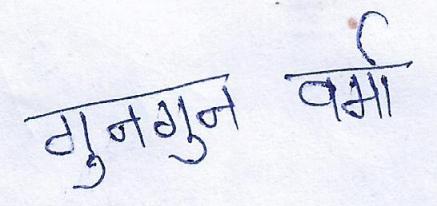 गुनगुन वर्मा